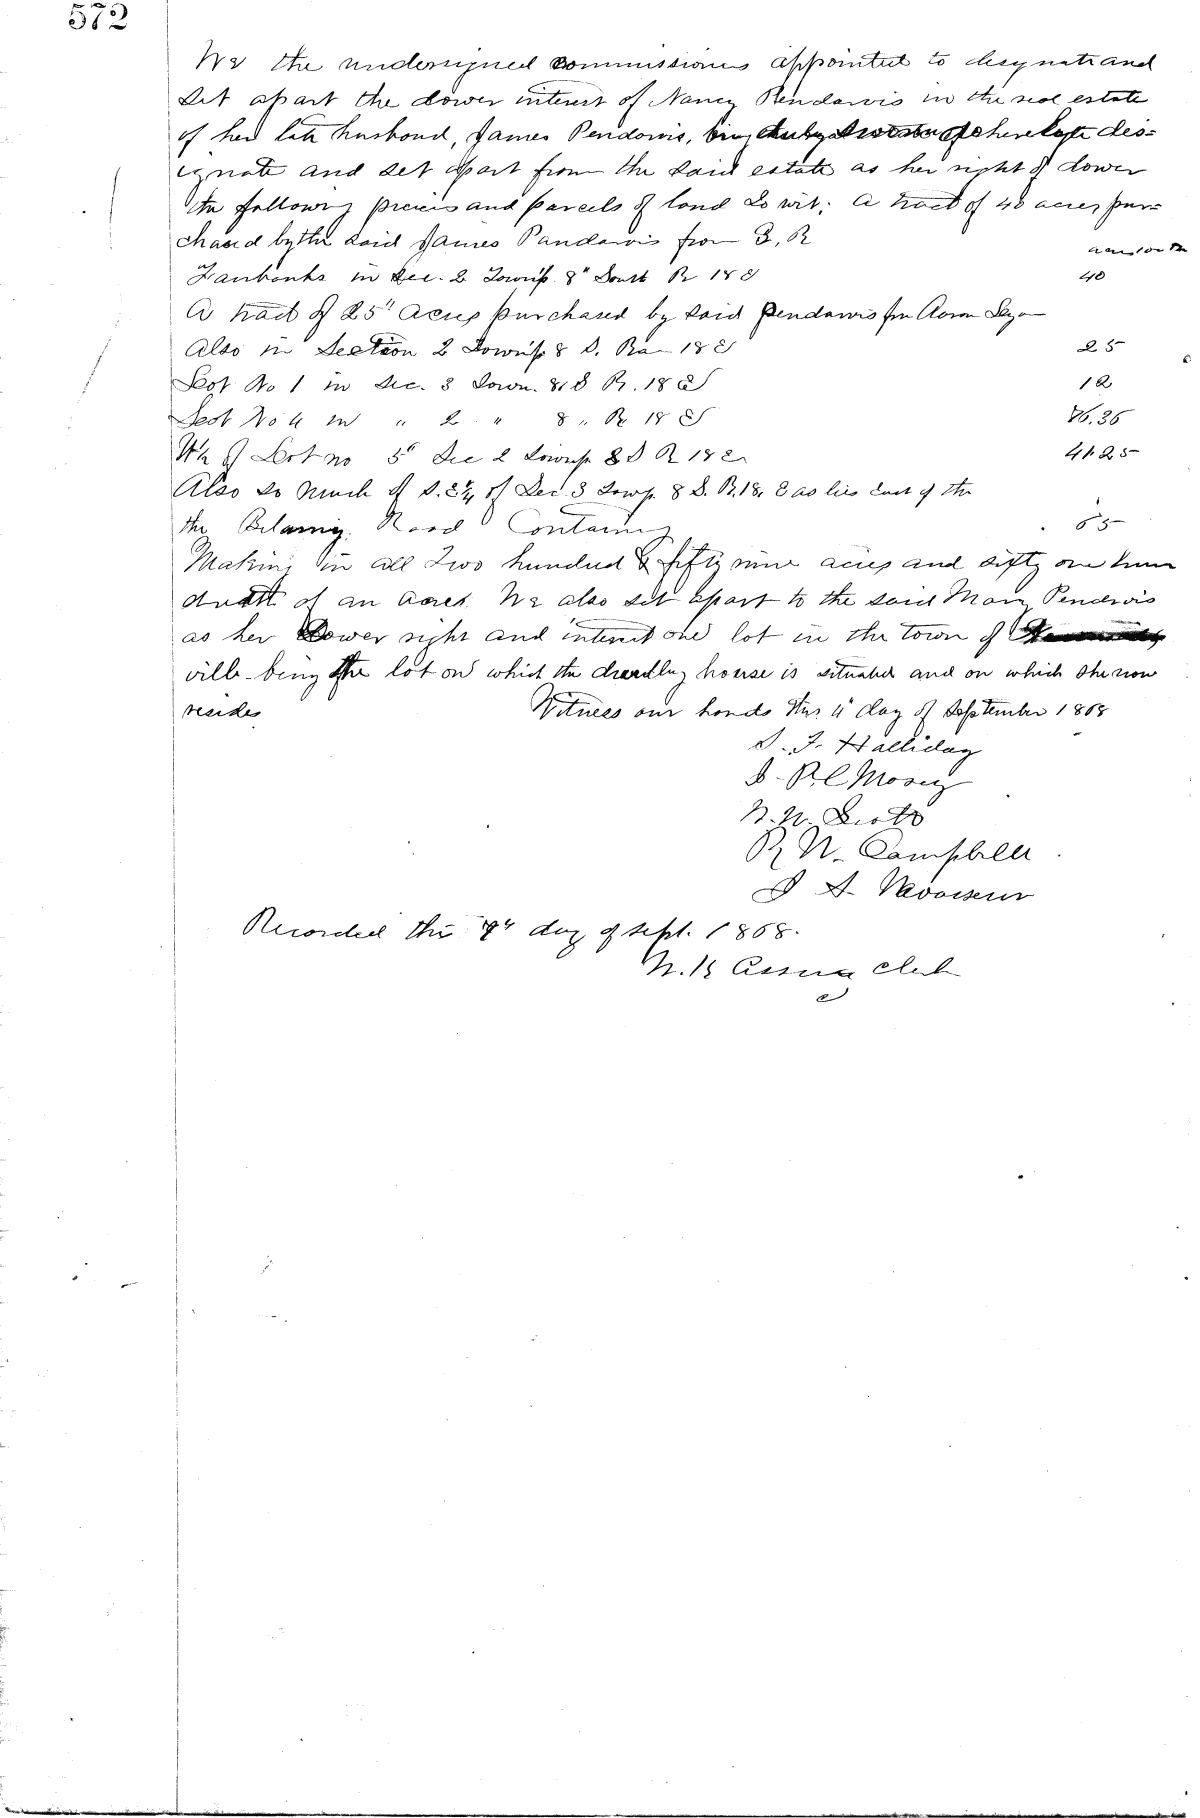 572
We the undersigned commissioners appointed to designate and
set apart the dower interest of Nancy Pendarvis in the real estate
of her late husband, James Pendarvis, being duly do hereby des=
ignate and set apart from the said estate as her right of dower
the following pieces and parcels of land to wit; A tract of 40 acres pur=
chased by the said James Pandarvis from R
Fairbanks in Sec. 2 Townp. 8" South R 18 E 40
A tract of 25" Acres purchased by said Pendarvis fm Aaron
Also in Section 2 Townp 8 S. Ran 18 E 25
Lot No 1 in Sec. 3 Town. 8 S R. 18 E 12
Lot No 4 in " 2 " 8 " R 18 E 86.36
W½ of Lot no 5" Sec 2 Townp. 8 S R 18 E 41.25
Also so much of S.E¼ of Sec. 3 Townp. 8 S. R. 18. E as lies East of the
the Road Containing 55
Making in all Two hundred & fifty nine acres and sixty one hun
dredth of an Acres. We also set apart to the said Mary Pendarvis
as her Dower right and interest one lot in the town of
ville being the lot on which the dwelling house is situated and on which she now
resides Witness our hands this 4" day of September 1868
S. F. Halliday
N. N. Scott
R W. Campbell
Recorded this 7" day of sept. 1868.
Clerk